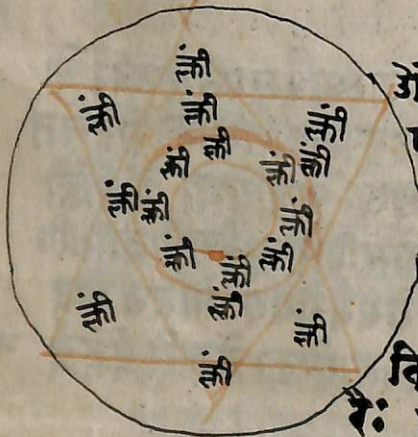 क्लीं
क्लीं क्लीं क्लीं
क्लीं
क्लीं क्लीं क्लीं
क्लीं क्लीं क्लीं
क्लीं क्लीं क्लीं
क्लीं
क्लीं क्लीं
क्लीं